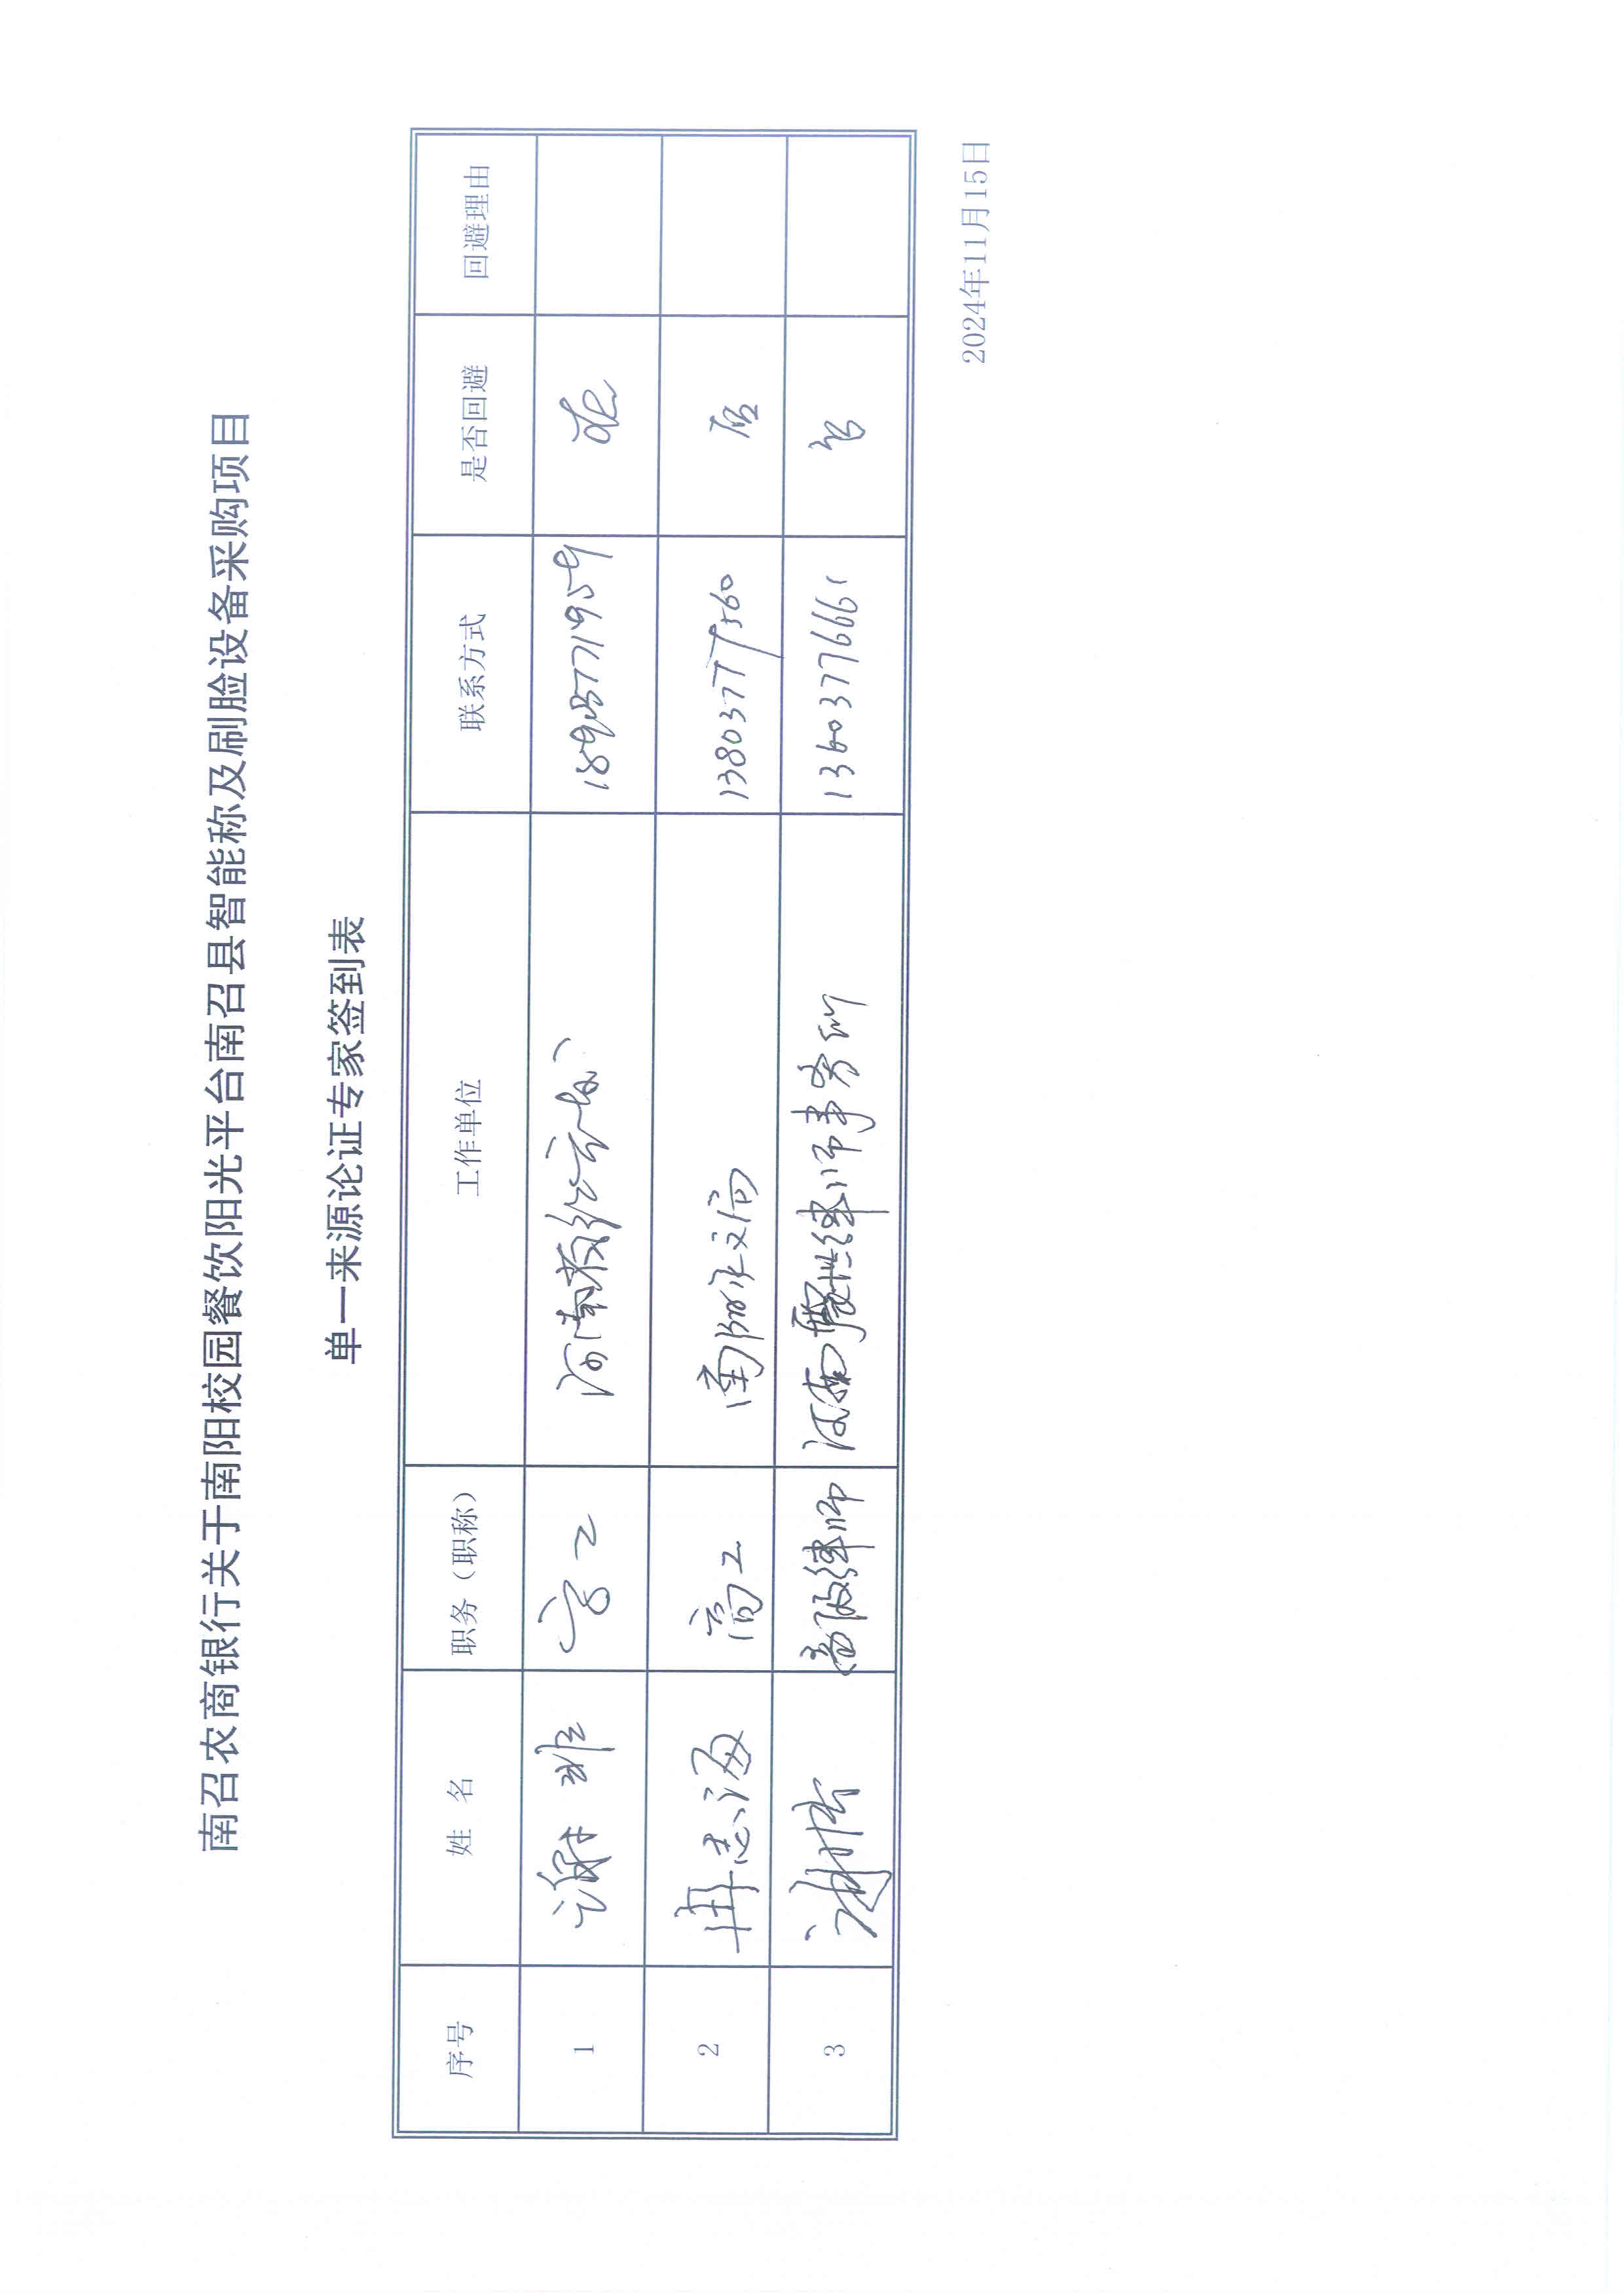 南召农商银行关于南阳校园餐饮阳光平台南召县智能称及刷脸设备采购项目
单一来源论证专家签到表
序号 姓 名 职务（职称） 工作单位 联系方式 是否回避 回避理由
1 谢 高工 河南 18903771959
2 冉志海 高工 南阳 13803777560 否
3 谢 律师 河南 律师事务所 13603776661 否
2024年11月15日